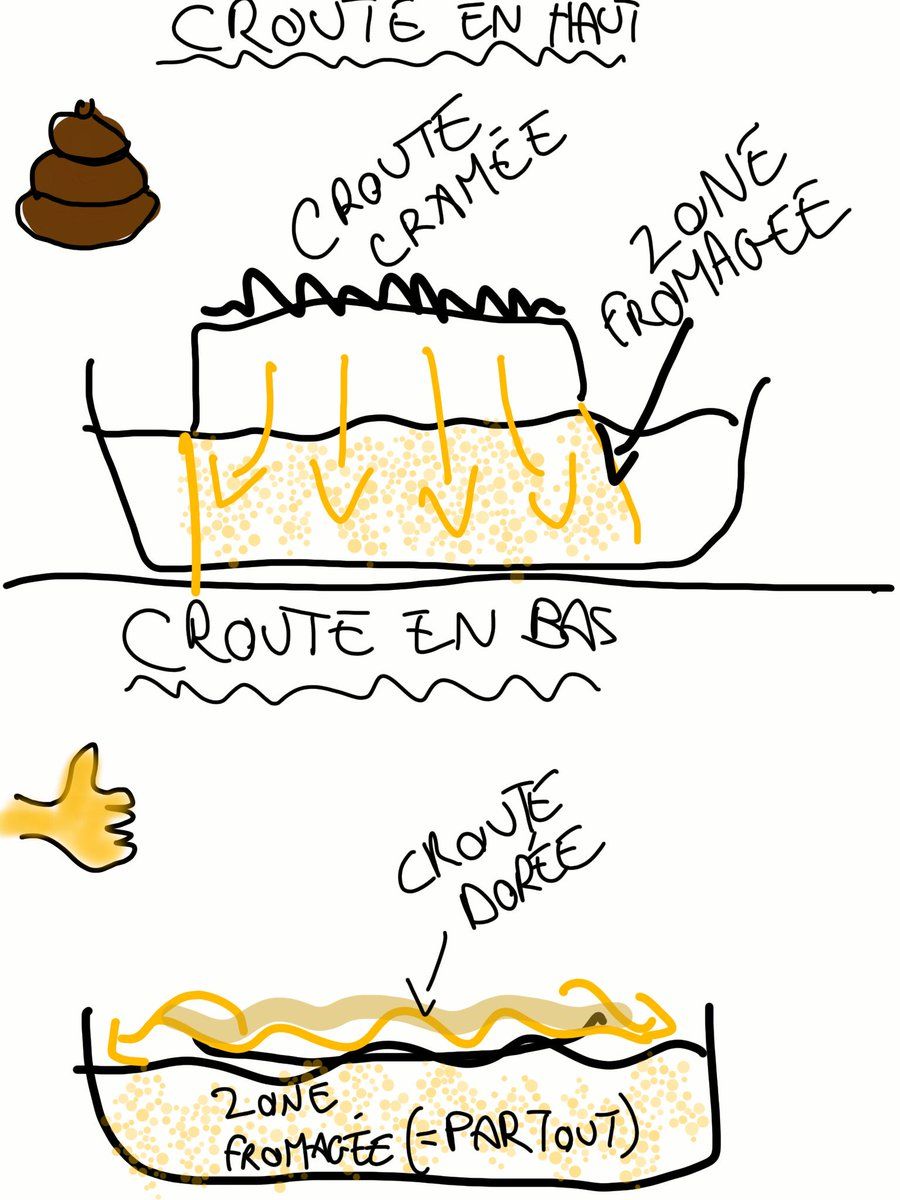 CROUTE EN HAUT
CROUTE
CRAMÉE
ZONE
FROMAGÉE
CROUTE EN BAS
CROUTE
DORÉE
ZONE
FROMAGÉE (=PARTOUT)